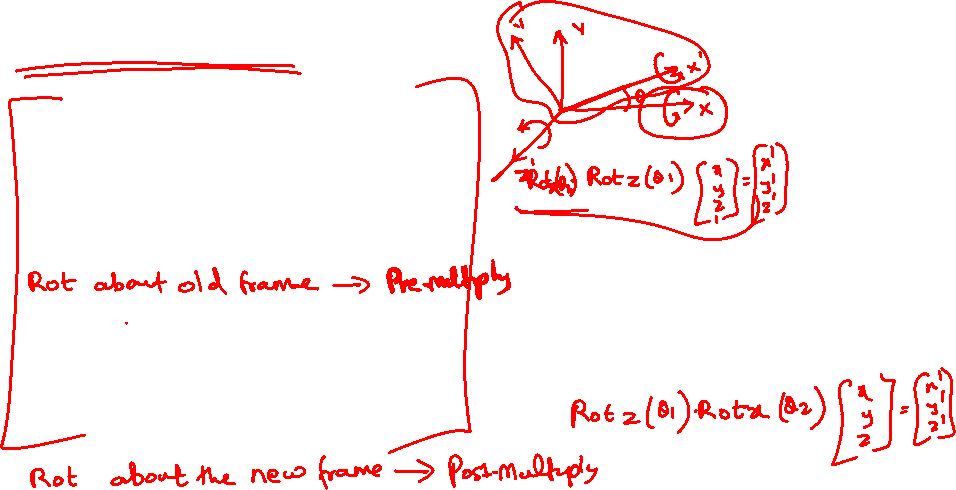 Y Y
X'
θ
X
z'
Rotx(θ2) Rot z (θ1) [x y z 1] = [x' y' z']
Rot about old frame → Pre-multiply
Rot z (θ1) · Rot x (θ2) [x y z] = [x' y' z']
Rot about the new frame → Post-multiply